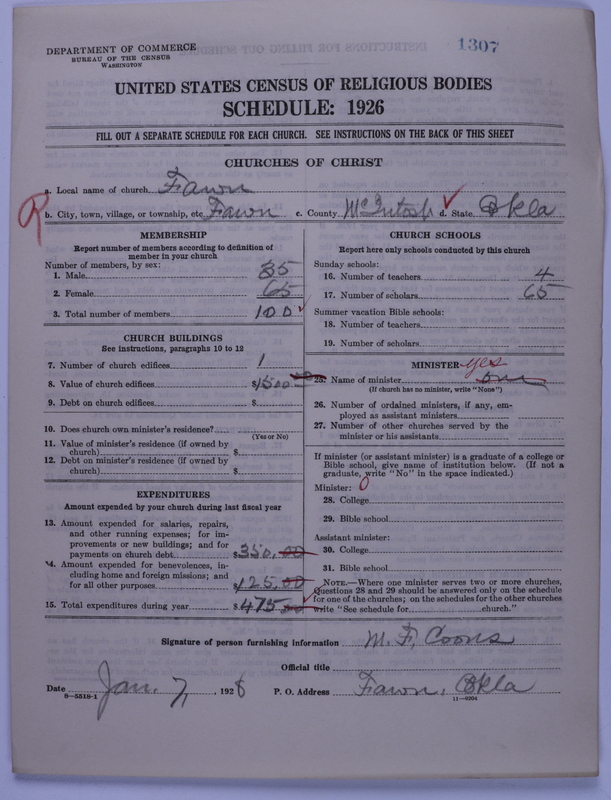 DEPARTMENT OF COMMERCE
BUREAU OF THE CENSUS
WASHINGTON
1307
UNITED STATES CENSUS OF RELIGIOUS BODIES
SCHEDULE: 1926
FILL OUT A SEPARATE SCHEDULE FOR EACH CHURCH. SEE INSTRUCTIONS ON THE BACK OF THIS SHEET
CHURCHES OF CHRIST
a. Local name of church Fawn
R b. City, town, village, or township, etc Fawn c. County McIntosh d. State Okla
MEMBERSHIP
Report number of members according to definition of
member in your church
Number of members, by sex:
1. Male 35
2. Female 65
3. Total number of members 100
CHURCH BUILDINGS
See instructions, paragraphs 10 to 12
7. Number of church edifices 1
8. Value of church edifices $1500
9. Debt on church edifices $
10. Does church own minister's residence?
(Yes or No)
11. Value of minister's residence (if owned by
church) $
12. Debt on minister's residence (if owned by
church) $
EXPENDITURES
Amount expended by your church during last fiscal year
13. Amount expended for salaries, repairs,
and other running expenses; for im-
provements or new buildings; and for
payments on church debt $350.00
14. Amount expended for benevolences, in-
cluding home and foreign missions; and
for all other purposes $125.00
15. Total expenditures during year $475.00
CHURCH SCHOOLS
Report here only schools conducted by this church
Sunday schools:
16. Number of teachers 4
17. Number of scholars 65
Summer vacation Bible schools:
18. Number of teachers
19. Number of scholars
MINISTER yes
25. Name of minister one
(If church has no minister, write "None")
26. Number of ordained ministers, if any, em-
ployed as assistant ministers
27. Number of other churches served by the
minister or his assistants
If minister (or assistant minister) is a graduate of a college or
Bible school, give name of institution below. (If not a
graduate, write "No" in the space indicated.)
Minister: 0
28. College
29. Bible school
Assistant minister:
30. College
31. Bible school
NOTE.—Where one minister serves two or more churches,
Questions 28 and 29 should be answered only on the schedule
for one of the churches; on the schedules for the other churches
write "See schedule for church."
Signature of person furnishing information M. F. Coons
Official title
Date Jan. 7, 1928 P. O. Address Fawn, Okla
8—5518-1 11—9204